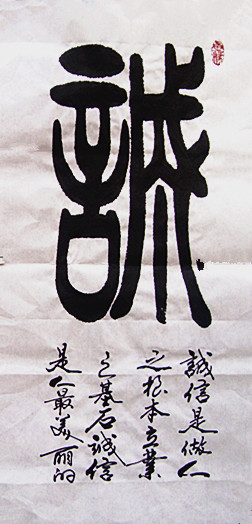 誠
誠信是做人
之根本立業
之基石誠信
是人最美丽的